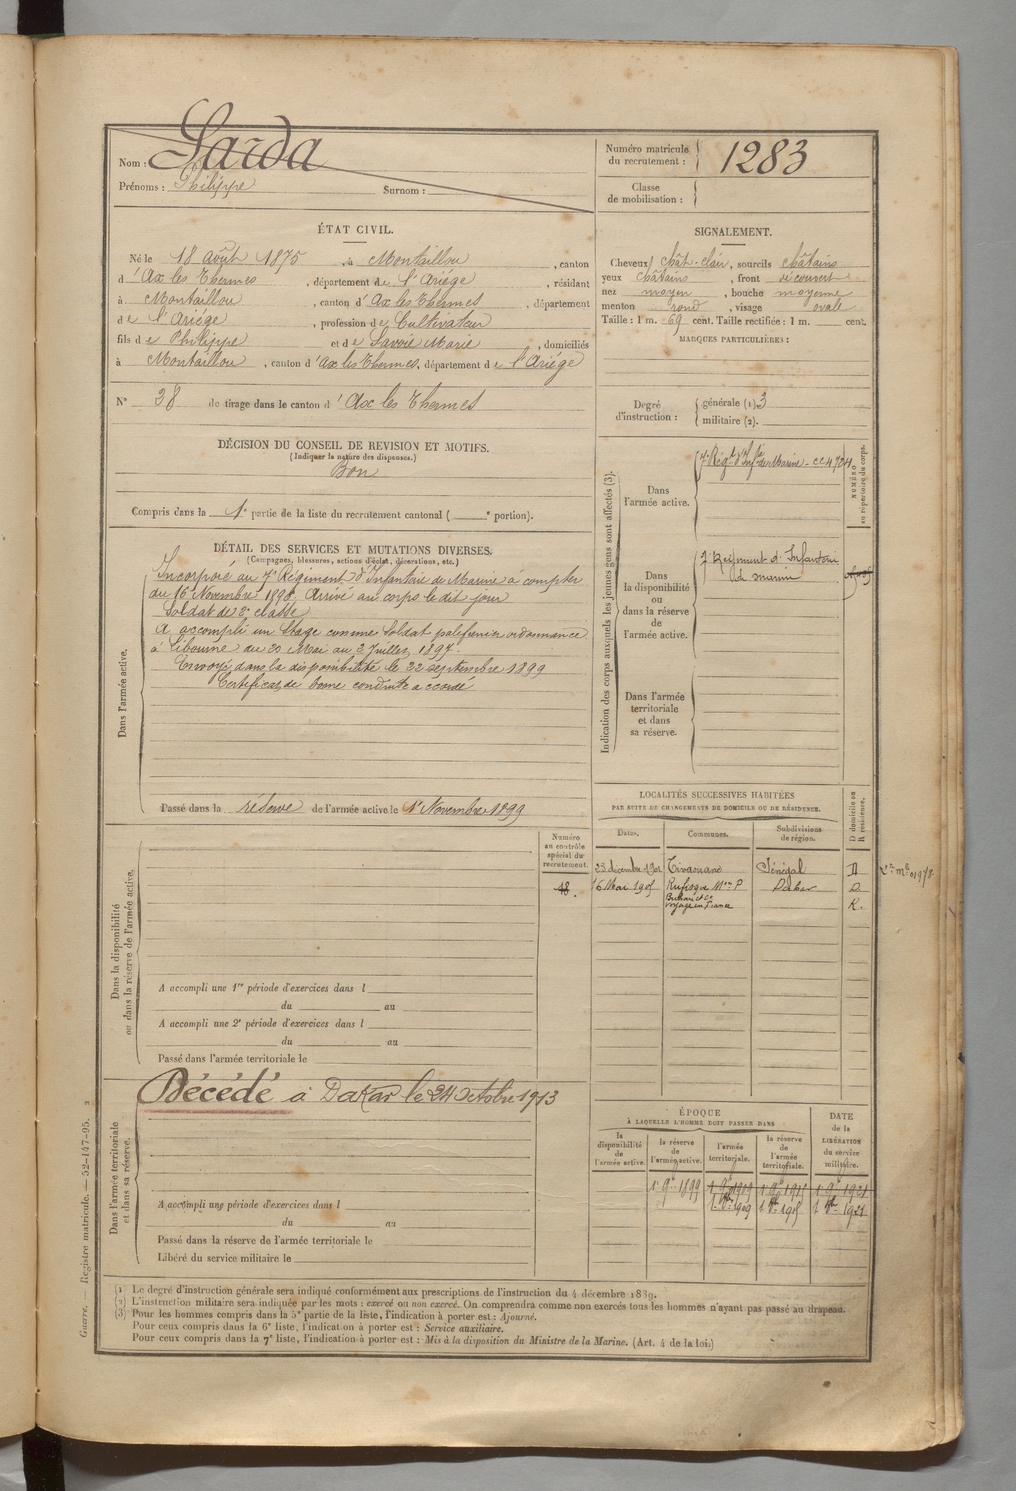 Nom : Sarda
Prénoms : Philippe Surnom :
Numéro matricule du recrutement : 1283
Classe de mobilisation :
ÉTAT CIVIL.
Né le 18 août 1875, à Montaillou, canton
d'Ax les Thermes, département de l'Ariége, résidant
à Montaillou, canton d'Ax les Thermes, département
de l'Ariége, profession de Cultivateur
fils de Philippe et de Savoie Marie, domiciliés
à Montaillou, canton d'Ax les Thermes, département de l'Ariége
N° 38 de tirage dans le canton d'Ax les Thermes
SIGNALEMENT.
Cheveux chât-clair, sourcils châtains
yeux châtains, front découvert
nez moyen, bouche moyenne
menton rond, visage ovale
Taille : 1 m. 69 cent. Taille rectifiée : 1 m. cent.
MARQUES PARTICULIÈRES :
Degré d'instruction : générale (1) 3
militaire (2).
DÉCISION DU CONSEIL DE REVISION ET MOTIFS.
(Indiquer la nature des dispenses.)
Bon
Compris dans la 1e partie de la liste du recrutement cantonal ( e portion).
DÉTAIL DES SERVICES ET MUTATIONS DIVERSES.
(Campagnes, blessures, actions d'éclat, décorations, etc.)
Dans l'armée active.
Incorporé au 7e Régiment d'Infanterie de Marine à compter
du 16 Novembre 1896. Arrivé au corps le dit jour
Soldat de 2e classe
A accompli un Stage comme Soldat palefrenier ordonnance
à Libourne du 20 Mai au 2 Juillet 1897.
Envoyé dans la disponibilité le 22 septembre 1899
Certificat de bonne conduite accordé
Passé dans la réserve de l'armée active le 1r Novembre 1899
Indication des corps auxquels les jeunes gens sont affectés (3).
NUMÉRO au répertoire du corps.
Dans l'armée active.
7e Régt d'Infie de Marine - cc 4704
Dans la disponibilité ou dans la réserve de l'armée active.
7e Régiment d'Infanterie
de marine
Dans l'armée territoriale et dans sa réserve.
LOCALITÉS SUCCESSIVES HABITÉES
PAR SUITE DE CHANGEMENTS DE DOMICILE OU DE RÉSIDENCE.
Dates. Communes. Subdivisions de région. D domicile ou R résidence.
23 décembre 1901 Tivaouane Sénégal D
16 Mai 1905 Rufisque Mon P Dakar D.
voyage en France R.
Numéro au contrôle spécial du recrutement.
48.
Dans la disponibilité ou dans la réserve de l'armée active.
A accompli une 1re période d'exercices dans l
du au
A accompli une 2e période d'exercices dans l
du au
Passé dans l'armée territoriale le
Dans l'armée territoriale et dans sa réserve.
Décédé à Dakar le 24 Octobre 1913
A accompli une période d'exercices dans l
du au
Passé dans la réserve de l'armée territoriale le
Libéré du service militaire le
ÉPOQUE
À LAQUELLE L'HOMME DOIT PASSER DANS
la disponibilité de l'armée active.
la réserve de l'armée active.
l'armée territoriale.
la réserve de l'armée territoriale.
DATE de la LIBÉRATION du service militaire.
1r 9e 1899 1 9e 1909 1r 9e 1915 1r 9e 1921
(1) Le degré d'instruction générale sera indiqué conformément aux prescriptions de l'instruction du 4 décembre 1889.
(2) L'instruction militaire sera indiquée par les mots : exercé ou non exercé. On comprendra comme non exercés tous les hommes n'ayant pas passé au drapeau.
(3) Pour les hommes compris dans la 5e partie de la liste, l'indication à porter est : Ajourné.
Pour ceux compris dans la 6e liste, l'indication à porter est : Service auxiliaire.
Pour ceux compris dans la 7e liste, l'indication à porter est : Mis à la disposition du Ministre de la Marine. (Art. 4 de la loi.)
Guerre. — Registre matricule. — 52-147-95. 2